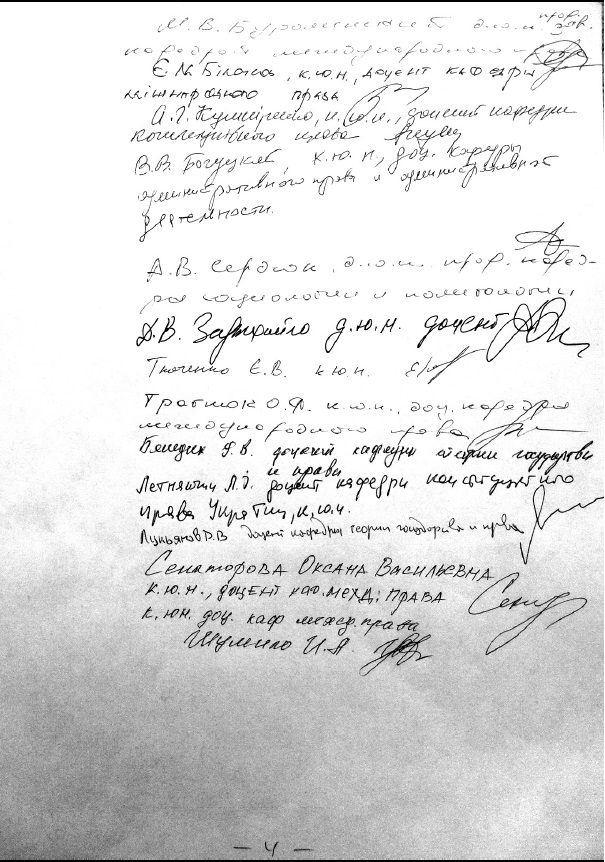 М. В. Буроменский д.ю.н. проф. зав.
кафедрой международного права
Є.М. Білоус, к.ю.н., доцент кафедри
міжнародного права
к.ю.н., доцент кафедри
права
В.В. Богуцкий к.ю.н., доц. кафедры
административного права и административной
деятельности.
А.В. Сердюк д.ю.н. проф. кафед-
ры социологии и политологии,
Д.В. д.ю.н. доцент
Ткаченко Є.В. к.ю.н.
Трагнюк О.Ф. к.ю.н., доц. кафедры
международного права
доцент кафедры теории государства
и права
Летнянчин Л.І. доцент кафедри конституційного
права України, к.ю.н.
Лукьянов Д.В доцент кафедры теории государства и права
Сенаторова Оксана Васильевна
к.ю.н., доцент каф. межд. права
к.юн. доц. каф межд. права
Шуміло И.А.
– 4 –